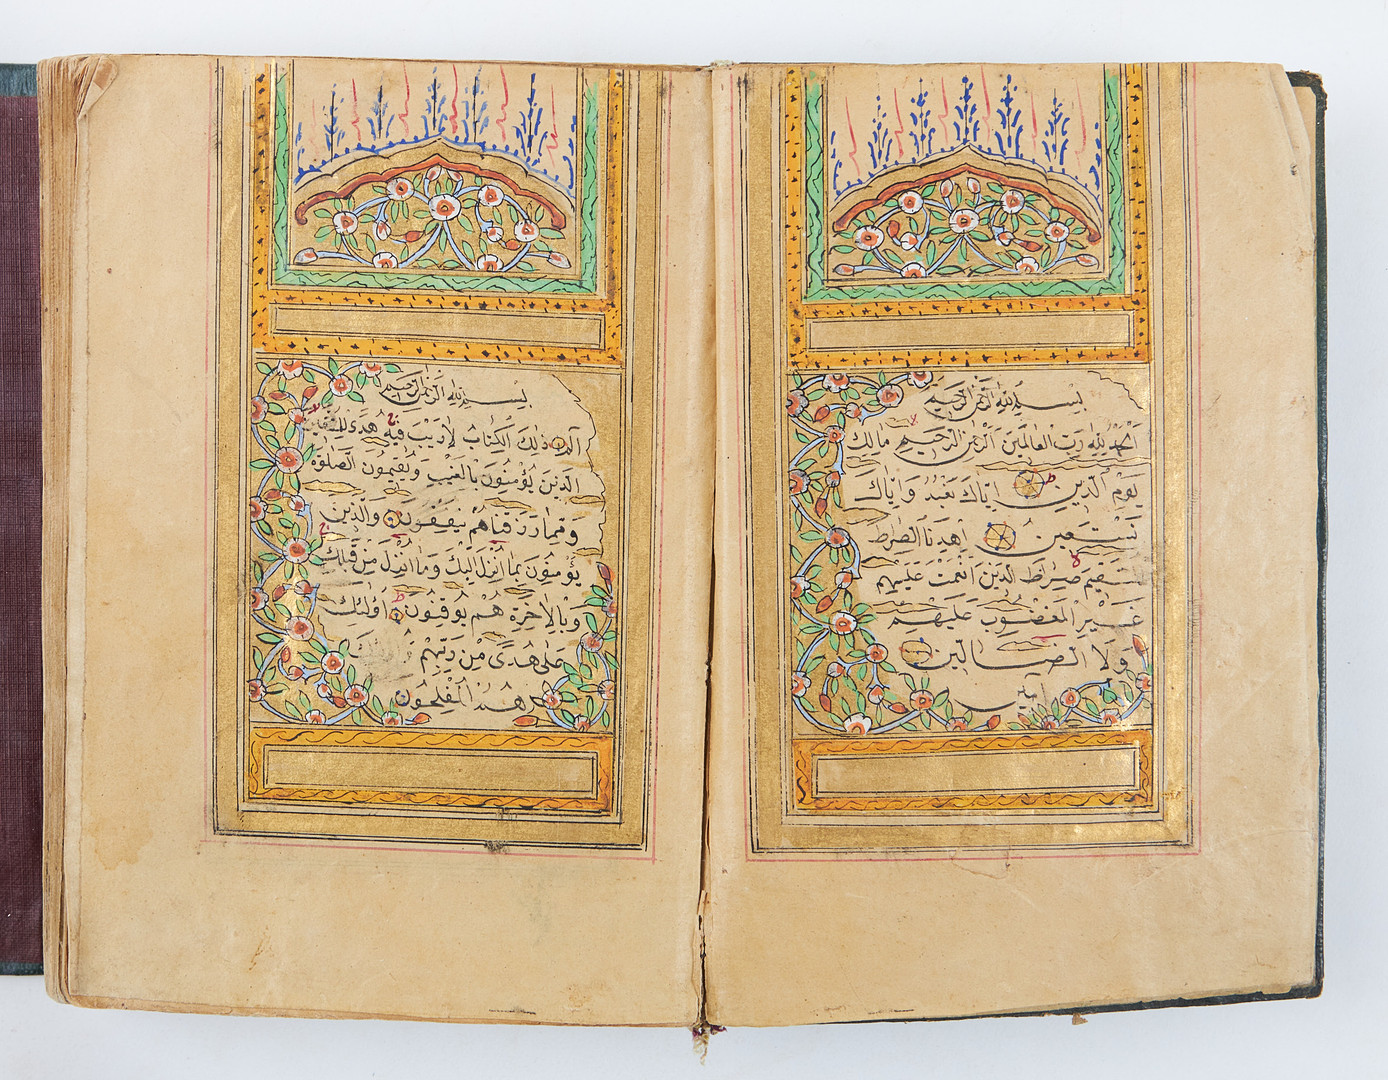 بسم الله الرحمن الرحيم
الحمد لله رب العالمين الرحمن الرحيم مالك
يوم الدين اياك نعبد واياك
نستعين اهدنا الصراط
المستقيم صراط الذين انعمت عليهم
غير المغضوب عليهم
ولا الضالين
امين
بسم الله الرحمن الرحيم
الم ذلك الكتاب لا ريب فيه هدى للمتقين
الذين يؤمنون بالغيب ويقيمون الصلوة
ومما رزقناهم ينفقون والذين
يؤمنون بما انزل اليك وما انزل من قبلك
وبالاخرة هم يوقنون اولئك
على هدى من ربهم واولئك
هم المفلحون